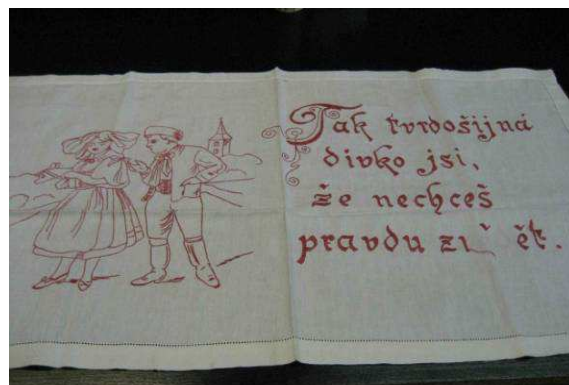 Tak tvrdošijná
divko jsi,
že nechceš
pravdu